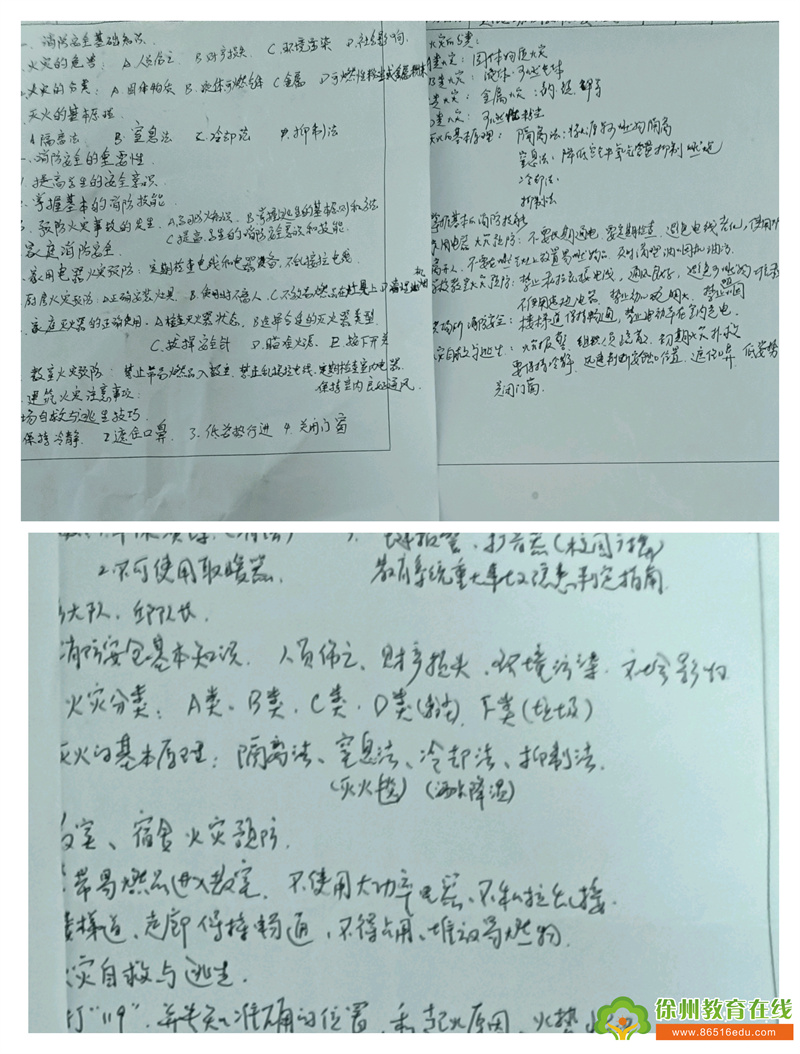 一、消防安全基础知识
火灾的危害： A.人员伤亡 B.财产损失 C.环境污染 D.社会影响
火灾的分类： A.固体物质 B.液体可燃气体 C金属 D可燃性粉尘或金属粉末
灭火的基本原理
A隔离法 B.窒息法 C.冷却法 D.抑制法
消防安全的重要性
提高学生的安全意识
掌握基本的消防技能
预防火灾事故的发生
C提高学生的消防安全意识和技能
家庭消防安全
家用电器火灾预防：定期检查电线和电器设备，不乱接拉电线
厨房火灾预防：A正确安装灶具 B.使用时不离人
家庭灭火器的正确使用：A检查灭火器状态，B选择合适的灭火器类型
C拔掉安全针 D.瞄准火源 E.按下开关
教室火灾预防：禁止带易燃品入教室，禁止乱接拉电线，定期检查室内电器
保持室内良好通风
建筑火灾注意事项：
场自救与逃生技巧
保持冷静 2遮住口鼻 3.低姿势行进 4.关闭门窗
火灾分类：
类火灾：固体物质火灾
类火灾：液体、可燃气体
类火灾：金属火灾：钠、镁、钾等
类火灾：可燃性粉尘
灭火的基本原理：隔离法：将火源与可燃物隔离
窒息法：降低空气中氧气含量抑制燃烧
冷却法：
抑制法
掌握基本的消防技能
家用电器火灾预防：不要长期通电，要定期检查，避免电线老化，使用时
离开人，不要在燃气灶上放置易燃物品，及时清理油烟机油污
学校教室火灾预防：禁止私拉乱接电线，通风良好，避免可燃物
不使用违规电器，禁止幼儿园烟火
消防安全：楼梯道保持畅通，禁止电动车在室内充电
灾自救与逃生：火灾报警，组织人员疏散，初期火灾扑救
要保持冷静，迅速判断安全出口位置，遮住口鼻，低姿势
关闭门窗
2.不可使用取暖器. 教育系统重大事故隐患判定指南
大队，邱队长.
消防安全基本知识. 人员伤亡、财产损失、环境污染、社会影响
火灾分类：A类、B类、C类、D类(粉尘)、F类(垃圾)
灭火的基本原理：隔离法、窒息法、冷却法、抑制法.
(灭火毯) (洒水降温)
教室、宿舍火灾预防.
带易燃品进入教室，不使用大功率电器、不私拉乱接
楼梯道、走廊保持畅通，不得占用、堆放易燃物.
火灾自救与逃生.
打"119"，并告知准确的位置，和起火原因，火势
徐州教育在线
www.86516edu.com